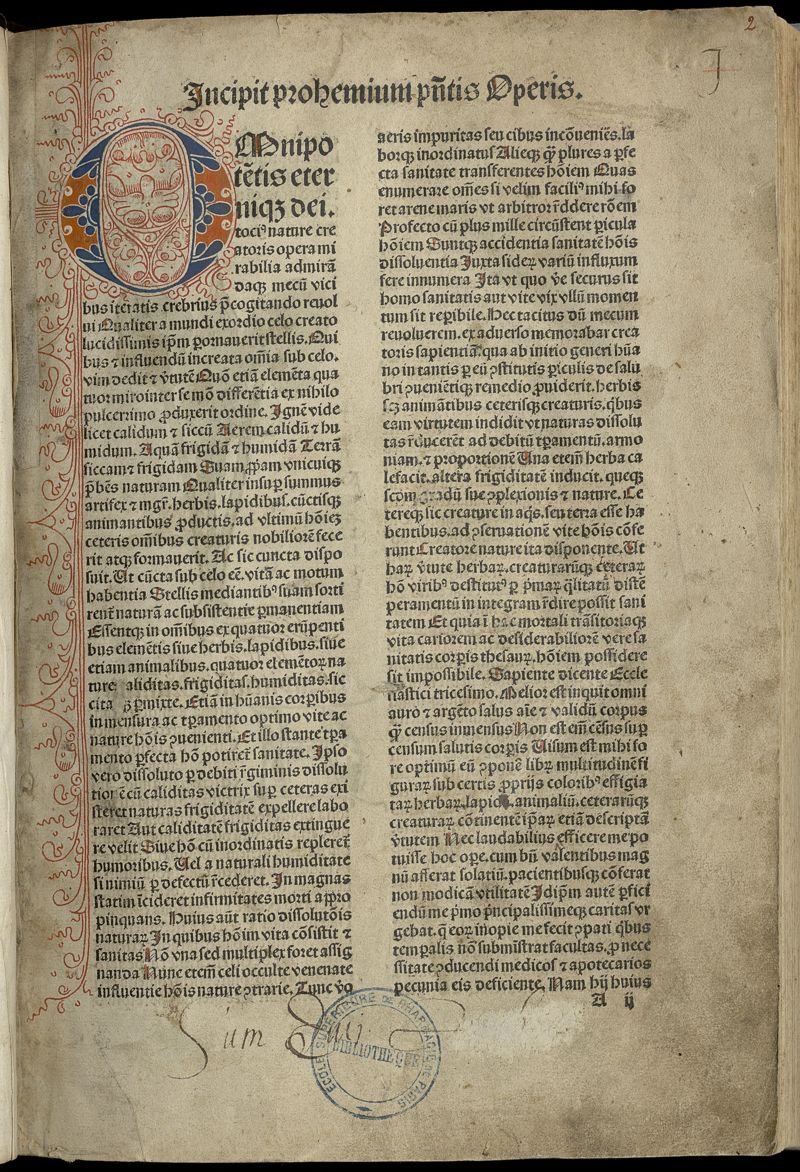 2
J
Incipit prohemium pñtis Operis.
OMnipo
tētis eter
niqꝫ dei.
tociꝰ nature cre
atoris opera mi
rabilia admirā
daqꝫ mecū vici
bus iteratis crebrius p̄cogitando reuol
ui Qualiter a mundi exordio celo creato
lucidissimis ip̄m ꝑornauerit stellis. Qui
bus ⁊ influendū increata om̄ia sub celo.
vim dedit ⁊ v̓tutē Quō etiā elemēta qua
tuor miro inter se mō differētia ex nihilo
pulcerrimo ꝓduxerit ordine. Ignē vide
licet calidum ⁊ siccū Aerem calidū ⁊ hu
midum. Aquā frigidā ⁊ humidā Terrā
siccam ⁊ frigidam Suam ꝓpam vnicuiqꝫ
p̄bēs naturam Qualiter insuꝑ summus
artifex ⁊ mgr̄. herbis. lapidibus. cūctisqꝫ
animantibus ꝓductis. ad vltimū hōieꝫ
ceteris om̄ibus creaturis nobiliorē fece
rit atqꝫ formauerit. Ac sic cuncta dispo
suit. Ut cūcta sub celo eē. vitā ac motum
habentia Stellis mediantibꝰ suam sorti
rent̄ naturā ac subsistentie ꝑmanentiam
Essentqꝫ in om̄ibus ex quatuor erūpenti
bus elemētis siue herbis. lapidibus. siue
etiam animalibus. quatuor elemētoꝝ na
ture aliditas. frigiditas. humiditas. sic
cita ꝫ ꝑmixte. Etiā in hūanis corꝑibus
in mensura ac tꝑamento optimo vite ac
nature hōis ꝯuenienti. Et illo stante tꝑa
mento ꝑfecta hō potiret̄ sanitate. Ipso
vero dissoluto ꝑ debiti r̄giminis dissolu
tionē cū caliditas victrix suꝑ ceteras exi
steret naturas frigiditatē expellere labo
raret Aut caliditatē frigiditas extingue
re velit Siue hō cū inordinatis repleret̄
humoribus. Uel a naturali humiditate
si nimiū ꝑ defectū r̄cederet. In magnas
statim īcideret infirmitates morti aꝓpro
pinquans. Huius aūt ratio dissolutōis
naturaꝝ In quibus hōim vita cōsistit ⁊
sanitas Nō vna sed multiplex foret assig
nanda Nunc etem̄ celi occulte venenate
influentie hōis nature ꝯtrarie. Tunc v̓o
aeris impuritas seu cibus incōueniēs. la
borqꝫ inordinatus Alieqꝫ qꝫ̄ plures a ꝑfe
cta sanitate transferentes hōiem Quas
enumerare om̄es si velim faciliꝰ mihi fo
ret arene maris vt arbitror r̄ddere rōem
Profecto cū plus mille circūstent ꝑicula
hōiem Suntqꝫ accidentia sanitatē hōis
dissoluentia Juxta sideꝝ variū influxum
fere innumera Ita vt quo v̓e securus sit
homo sanitatis aut vite vix vllū momen
tum sit reꝑibile. Hec tacitus dū mecum
reuoluerem. ex aduerso memorabar crea
toris sapientiā. qua ab initio generi hūa
no in tantis ꝑ eū ꝯstitutis ꝑiculis de salu
bri ꝯuenietiqꝫ remedio ꝓuiderit. herbis
scꝫ animātibus ceterisqꝫ creaturis. qbus
eam virtutem indidit vt naturas dissolu
tas r̄ducerēt ad debitū tꝑamentū. armo
niam. ⁊ proportionē Una etem̄ herba ca
lefacit. altera frigiditatē inducit. queqꝫ
scḋm gradū sue ꝯplexionis ⁊ nature. Ce
tereqꝫ sic creature in aqs. seu terra esse ha
bentibus. ad ꝯseruationē vite hōis cōfe
runt Creatore nature ita disponente. Ut
haꝝ v̓tute herbaꝝ. creaturarūqꝫ ceteraꝝ
hō viribꝰ destitutꝰ ꝑ p̓maꝝ q̄litatū distē
peramentū in integram r̄dire possit sani
tatem Et quia ī hac mortali trāsitoriaqꝫ
vita cariorem ac desiderabiliorē vere sa
nitatis corꝑis thesauꝝ. hōiem possidere
sit impossibile. Sapiente dicente Eccle
siastici tricesimo. Melior est inquit omni
auro ⁊ argēto salus aīe ⁊ validū corpus
qꝫ̄ census inmensus Non est em̄ cēsus suꝑ
censum salutis corꝑis Uisum est mihi fo
re optimū eū ꝯponē libꝝ multitudinē fi
guraꝝ sub certis ꝓprijs coloribꝰ effigia
taꝝ herbaꝝ. lapidū. animaliū. ceterarūqꝫ
creaturaꝝ cōtinentē ip̄aꝝ etiā descriptā
v̓tutem Nec laudabilius efficere me po
tuisse hoc oꝑe. cum bn̄ valentibus mag
nū afferat solatiū. pacientibusqꝫ cōferat
non modicā vtilitatē Idip̄m autē ꝑfici
endū me p̓mo p̓ncipalissimeqꝫ caritas vr
gebat. q eoꝝ inopie me fecit ꝯpati qbus
temꝑalis nō submistrat facultas. ꝓ nece
ssitate ꝯducendi medicos ⁊ apotecarios
pecunia eis deficiente. Nam hij huius
A ij
Sum
ECOLE SUPERIEURE DE PHARMACIE DE PARIS
BIBLIOTHEQUE